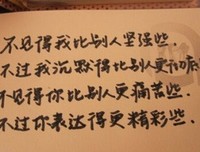 不见得我比别人坚强些.
不过我沉默得比别人更
不见得你比别人更痛苦些.
不过你表达得更精彩些.